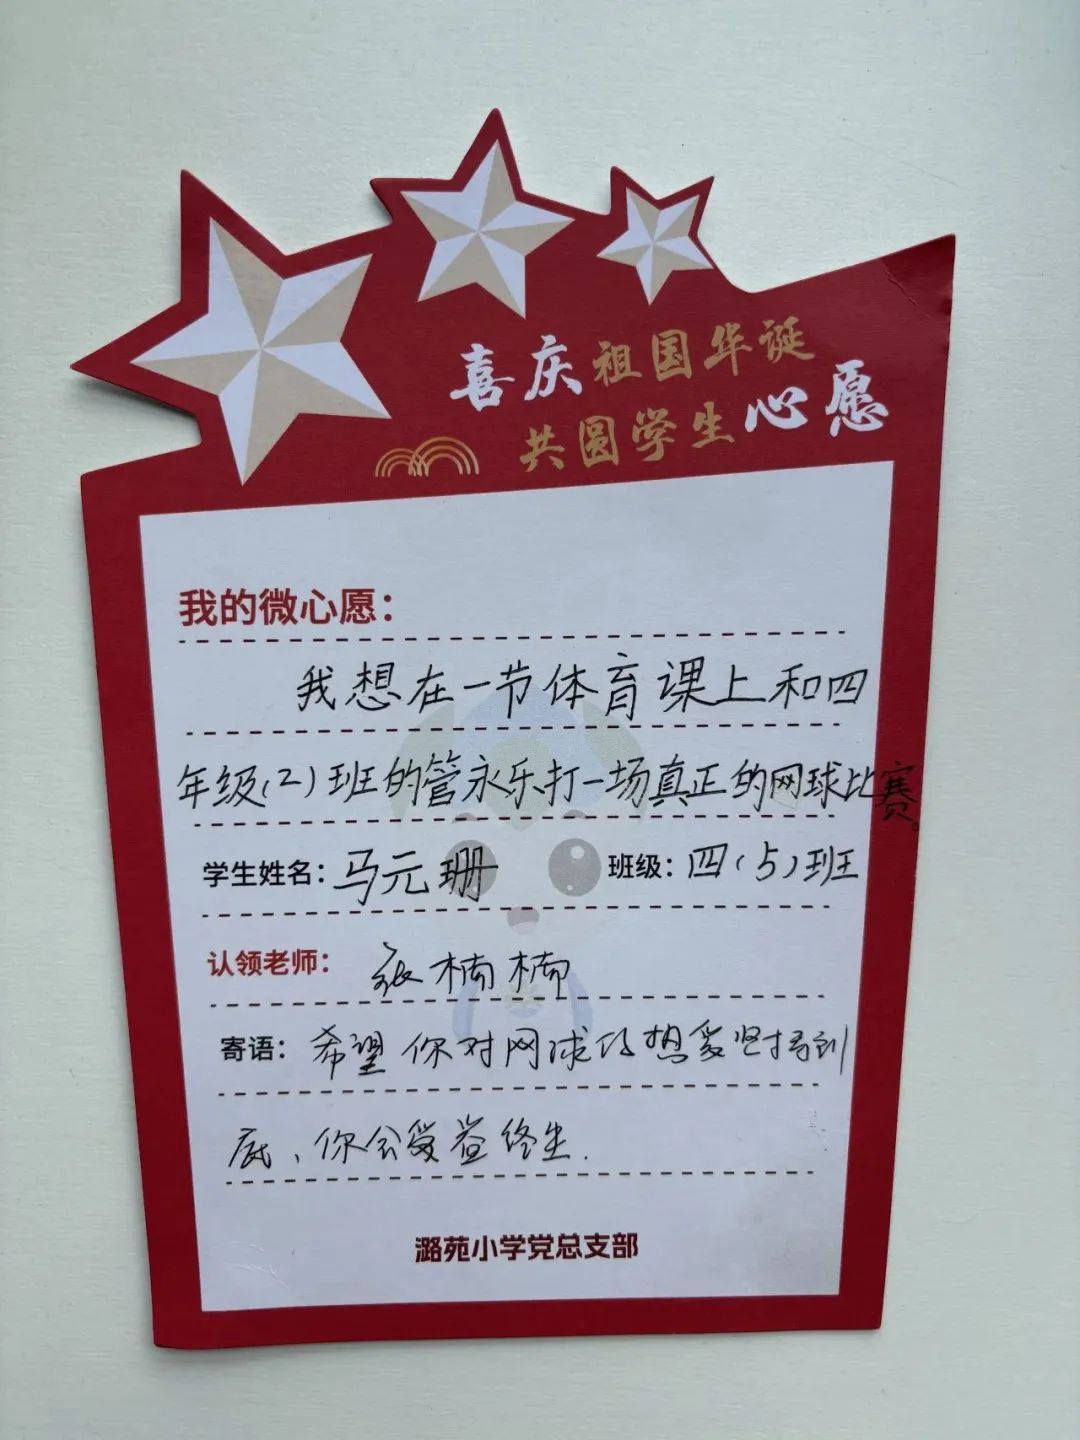 喜庆祖国华诞
共圆学生心愿
我的微心愿：
我想在一节体育课上和四
年级(2)班的管永乐打一场真正的网球比赛。
学生姓名：马元珊 班级：四(5)班
认领老师：张楠楠
寄语：希望你对网球的热爱坚持到
底、你会受益终生.
潞苑小学党总支部